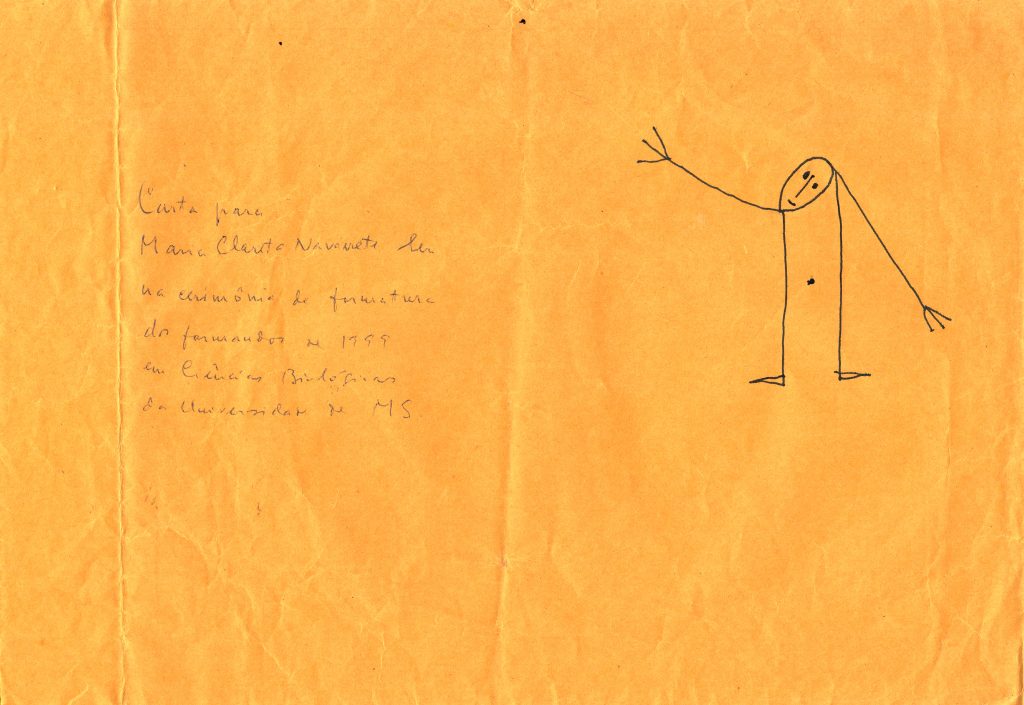 Carta para
Maria Clareta Navarrete ler
na cerimônia de formatura
dos formandos de 1999
em Ciências Biológicas
da Universidade de MS.